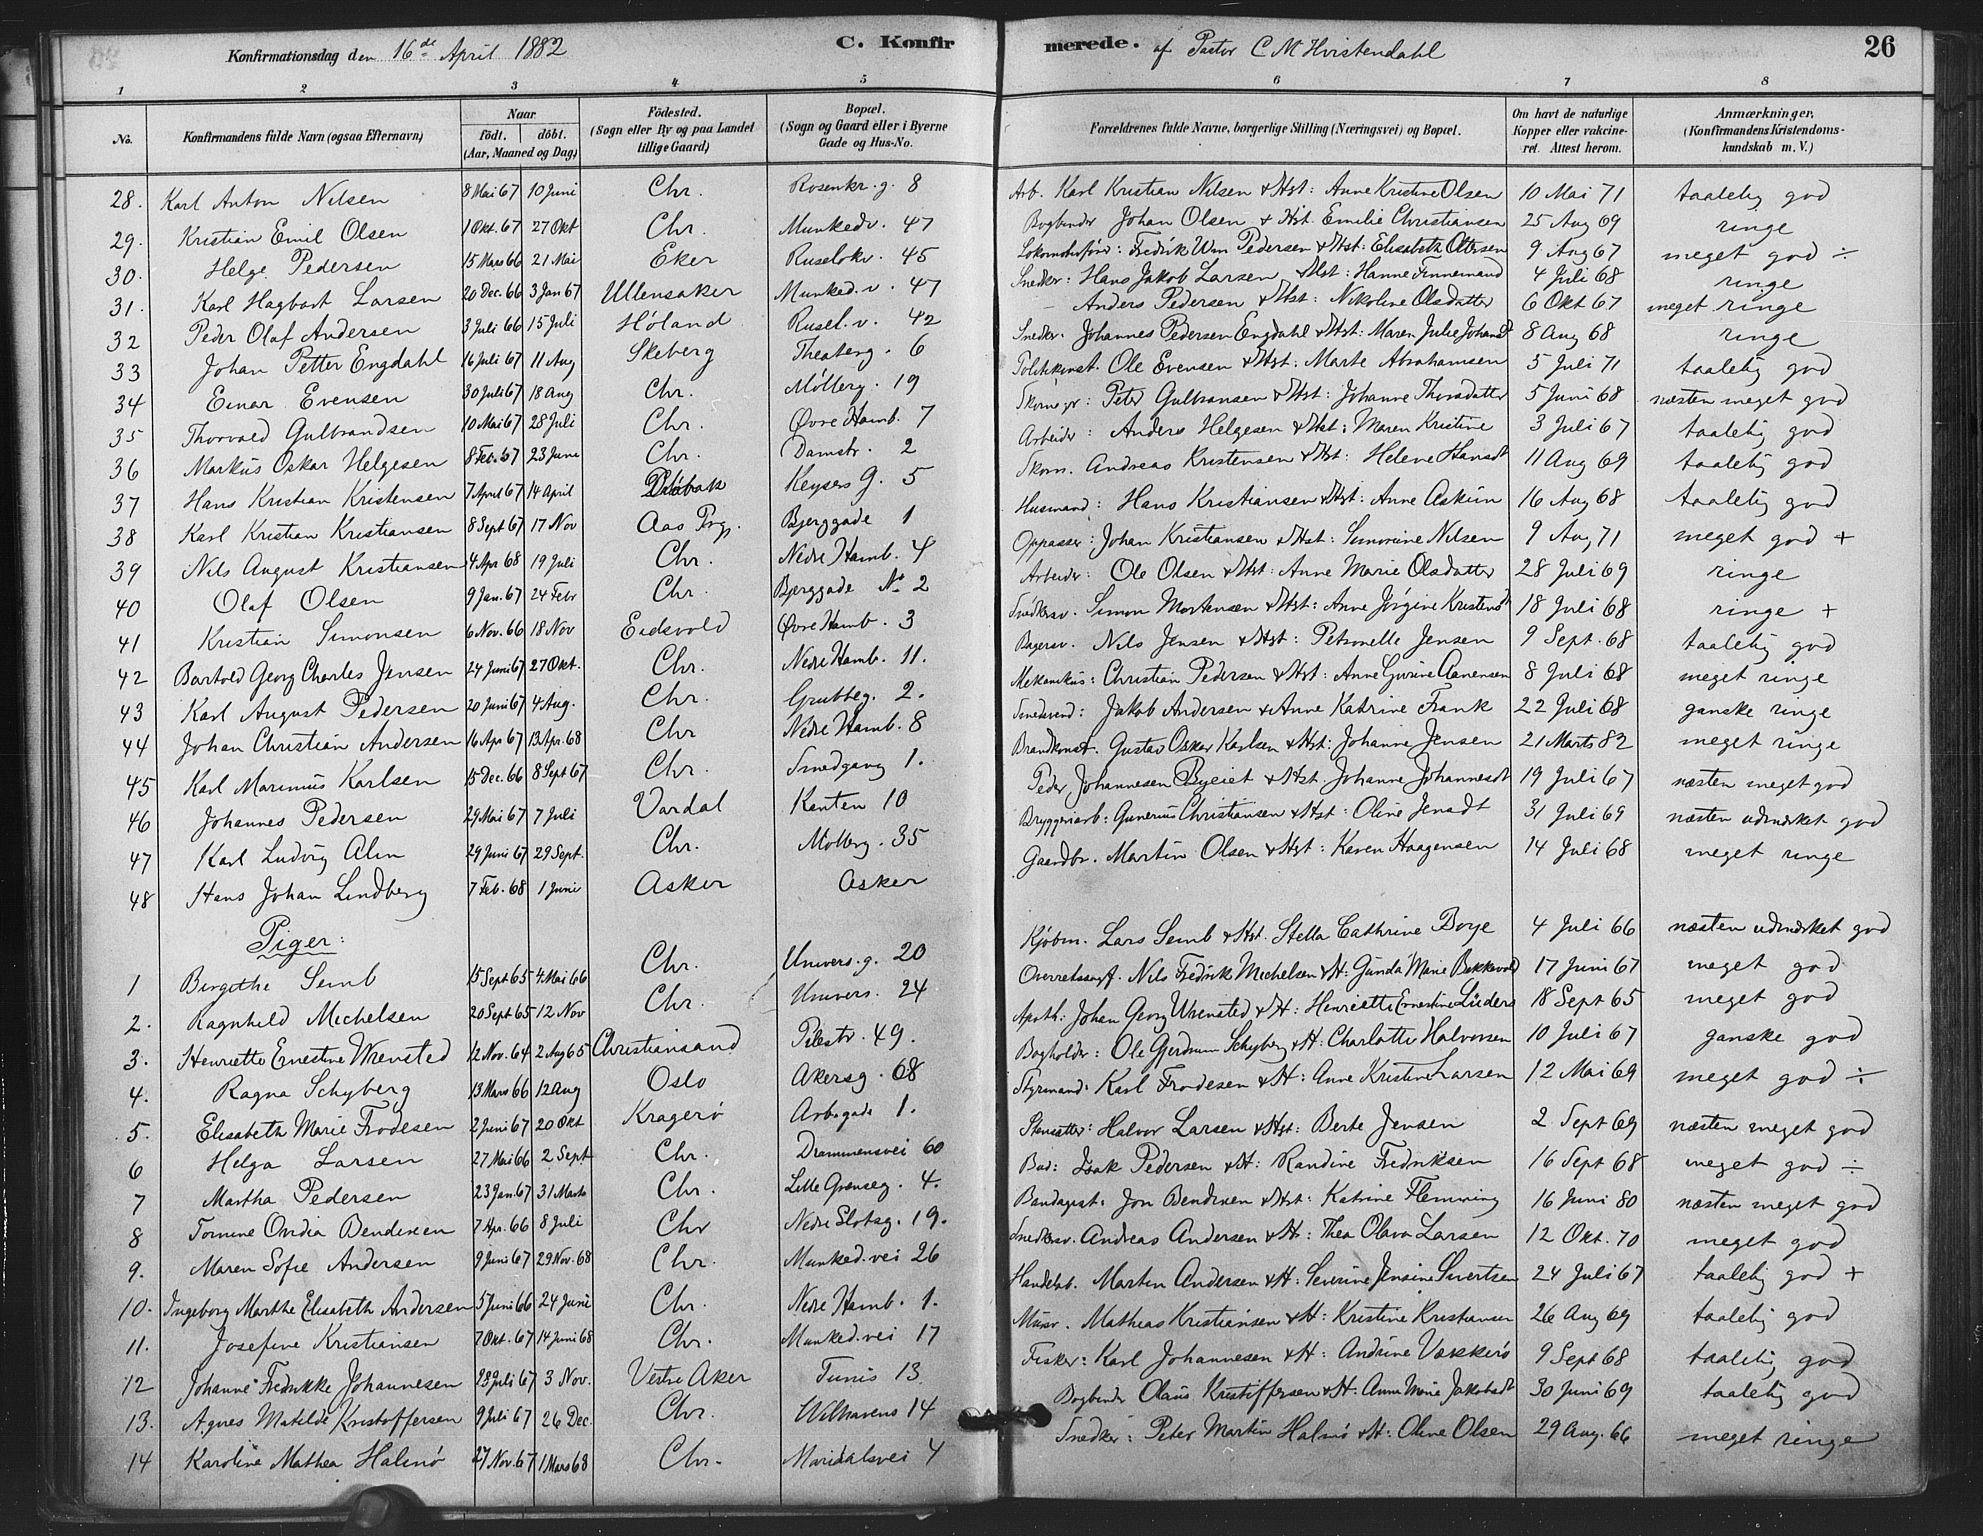 Konfirmationsdag den 16de April 1882 C. Konfir merede. af Pastor C M Hvistendahl 26
1 2 3 4 5 6 7 8
No. Konfirmandens fulde Navn (ogsaa Efternavn) Naar født. døbt. (Aar, Maaned og Dag) Födested. (Sogn eller By og paa Landet tillige Gaard) Bopæl. (Sogn og Gaard eller i Byerne Gade og Hus-No. Forældrenes fulde Navne, borgerlige Stilling (Næringsvei) og Bopæl. Om havt de naturlige Kopper eller vakcineret. Attest herom. Anmærkninger. (Konfirmandens Kristendomskundskab m. V.)
28. Karl Anton Nilsen 8 Mai 67 10 Juni Chr. Rosenkr. g. 8 Arb. Karl Kristian Nilsen & Hst: Anne Kristine Olsen 10 Mai 71 taalelig god
29. Kristian Emil Olsen 1 Okt. 67 27 Okt Chr. Munkedv. 47 Bogbinder Johan Olsen & Hst. Emilie Christiansen 25 Aug 69 ringe
30. Helge Pedersen 15 Mars 66 21 Mai Eker Ruselokv. 45 Lokomotivfører: Fredrik Wm Pedersen & Hst: Elisabeth Ottersen 9 Aug 67 meget god ÷
31. Karl Hagbart Larsen 20 Dec. 66 3 Jan 67 Ullensaker Munked. v. 47 Snedker: Hans Jakob Larsen & Hst: Hanne Finnemand 4 Juli 68 ringe
32 Peder Olaf Andersen 3 Juli 66 15 Juli Høland Rusel. v. 42 Anders Pedersen & Hst: Nikoline Olsdatter 6 Okt 67 meget ringe
33 Johan Petter Engdahl 16 Juli 67 11 Aug Skeberg Theaterg. 6 Snedker. Johannes Pedersen Engdahl & Hst. Maren Julie Johansdt 8 Aug 68 ringe
34 Einar Evensen 30 Juli 67 18 Aug Chr. Møllerg. 19 Politikonst. Ole Evensen & Hst: Marte Abrahamsen 5 Juli 71 taalelig god
35 Thorvald Gulbrandsen 10 Mai 67 28 Juli Chr. Øvre Hamb. 7 Peter Gulbransen & Hst: Johanne Thorsdatter 5 Juni 68 næsten meget god
36 Markus Oskar Helgesen 8 Feb. 67 23 June Chr. Damstr. 2 Arbeider: Anders Helgesen & Hst: Maren Kristine 3 Juli 67 taalelig god
37 Hans Kristian Kristensen 7 April 67 14 April Drøbak Keysers G. 5 Skom. Andreas Kristensen & Hst: Helene Hansdt 11 Aug 69 taalelig god
38 Karl Kristian Kristiansen 8 Sept 67 17 Nov Aas Prgj. Bjerggade 1 Husmand: Hans Kristiansen & Hst: Anne Askim 16 Aug 68 taalelig god
39 Nils August Kristiansen 4 Apr 68 19 Juli Chr. Nedre Hamb. 4 Oppasser: Johan Kristiansen & Hst: Simorine Nilsen 9 Aug 71 meget god +
40 Olaf Olsen 9 Jan. 67 24 Febr Chr. Bjerggade No 2 Arbeider: Ole Olsen & Hst: Anne Marie Olsdatter 28 Juli 69 ringe
41 Kristian Simonsen 6 Nov. 66 18 Nov Eidsvold Øvre Hamb. 3 Snedkersv. Simon Mortensen & Hst: Anne Jørgine Kristensdt 18 Juli 68 ringe +
42 Bartold Georg Charles Jensen 24 Juni 67 27 Okt. Chr. Nedre Hamb. 11. Bagersv. Nils Jensen & Hst: Petronelle Jensen 9 Sept. 68 taalelig god
43 Karl August Pedersen 20 Juni 67 4 Aug. Chr. Grubbeg. 2. Mekanikus: Christian Pedersen & Hst: Anne Gurine Aanensen 8 Juli 68 meget ringe
44 Johan Christian Andersen 16 Apr 67 13 Apr. 68 Chr Nedre Hamb. 8 Smedsvend: Jakob Andersen & Anne Katrine Frank 22 Juli 68 ganske ringe
45 Karl Marinius Karlsen 15 Dec. 66 8 Sept 67 Chr. Smedgang 1. Brandkonst. Gustav Oskar Karlsen & Hst: Johanne Jensen 21 Marts 82 meget ringe
46 Johannes Pedersen 29 Mai 67 7 Juli Vardal Kanten 10 Peder Johannesen Byeiet & Hst. Johanne Johannesdt 19 Juli 67 næsten meget god
47 Karl Ludvig Alm 29 Juni 67 29 Sept. Chr. Mollerg. 35 Bryggeriarb: Gunerius Christiansen & Hst: Oline Jensdt 31 Juli 69 næsten udmærket god
48 Hans Johan Lindberg 7 Feb. 68 1 Juni Asker Asker Gaardbr. Martin Olsen & Hst: Karen Haagensen 14 Juli 68 meget ringe
Piger:
1 Birgithe Semb 15 Sept 65 4 Mai 66 Chr. Univers. g. 20 Kjøbm. Lars Semb & Hst. Stella Cathrine Boye 4 Juli 66 næsten udmærket god
2. Ragnhild Michelsen 20 Sept 65 12 Nov Chr. Univers. 24 Overretssagf. Nils Fredrik Michelsen & H: Gunda Marie Bekkevold 17 Juni 67 meget god
3. Henriette Ernestine Wrensted 12 Nov. 64 2 Aug 65 Christiansand Pilestr. 49. Apoth: Johan Georg Wrensted & H: Henriette Ernestine Lüders 18 Sept 65 meget god
4. Ragna Schyberg 13 Mars 66 12 Aug Oslo Akersg. 68 Bogholder: Ole Gjerdrum Schyberg & H: Charlotte Halvorsen 10 Juli 67 ganske god
5. Elisabeth Marie Frodesen 2 Juni 67 20 Okt Kragerø Arb. gade 1. Styrmand: Karl Frodesen & H: Anne Kristine Larsen 12 Mai 69 meget god ÷
6 Helga Larsen 27 Mai 66 2 Sept Chr. Drammensvei 60 Stensætter: Halvor Larsen & Hst: Berte Jensen 2 Sept 69 næsten meget god
7 Martha Pedersen 23 Jan. 67 31 Marts Chr. Lille Grænseg. 4. Bud: Isak Pedersen & H: Randine Fredriksen 16 Sept 68 meget god ÷
8 Tomine Ovidia Bendixen 7 Apr. 66 8 Juli Chr Nedre Slotsg. 19. Bandagist: Jon Bendixen & Hst: Katrine Flemming 16 Juni 80 næsten meget god
9. Maren Sofie Andersen 9 Juni 67 29 Nov. 68 Chr. Munked. vei 26 Snedkersv. Andreas Andersen & H: Thea Olava Larsen 12 Okt. 70 meget god
10. Ingeborg Marthe Elisabeth Andersen 5 Juni 66 24 Juni Chr. Nedre Hamb. 1. Handelsb. Martin Andersen & H: Severine Jensine Sivertsen 24 Juli 67 taalelig god +
11. Josefine Kristiansen 7 Okt. 67 14 Juni 68 Chr. Munked. vei 17 Mursv. Mathias Kristiansen & H: Kristine Kristiansen 26 Aug 69 taalelig god
12 Johanne Fredrikke Johannesen 23 Juli 67 3 Nov. Vestre Aker Tunis 13 Fisker: Karl Johannesen & H: Andrine Vækkerø 9 Sept 68 taalelig god
13. Agnes Matilde Kristoffersen 9 Juli 67 26 Dec. Chr. Wilhavens 14 Bogbinder Olaus Kristoffersen & H. Anne Marie Jakobsdt 30 Juni 69 taalelig god
14 Karoline Mathea Halmø 27 Nov. 67 1 Mars 68 Chr. Maridalsvei 4 Snedker: Peter Martin Halmø & H: Oline Olsen 29 Aug. 66 meget ringe